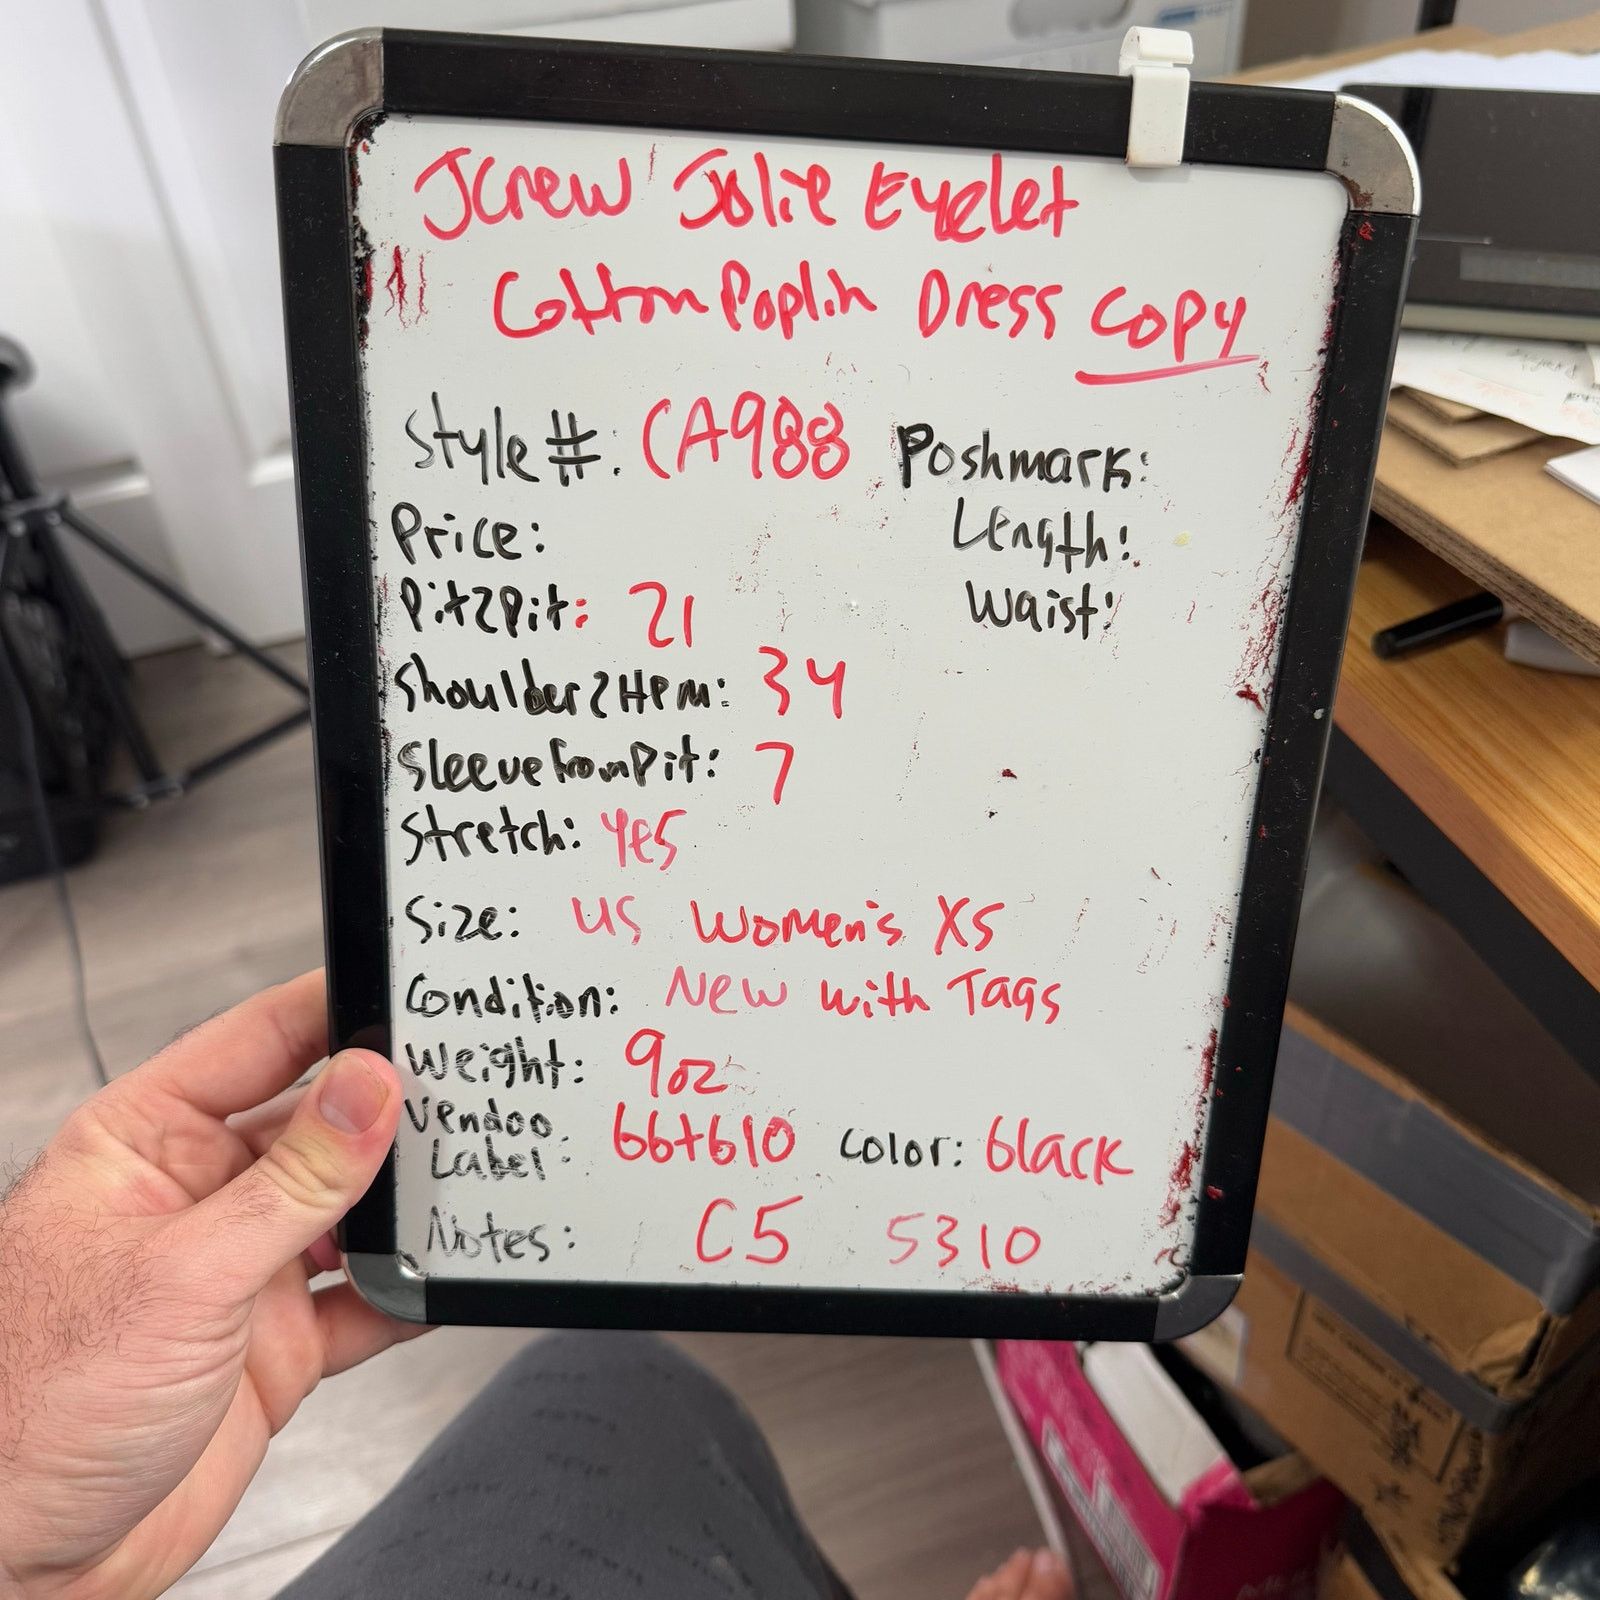 JCrew Jolie Eyelet
Cotton Poplin Dress Copy
Style #: CA988 Poshmark:
Price: Length:
Pit2Pit: 21 Waist:
Shoulder2Hem: 34
SleevefromPit: 7
Stretch: Yes
Size: US Women's XS
Condition: New with Tags
Weight: 9oz
Vendoo
Label: 66+610 Color: black
Notes: C5 5310